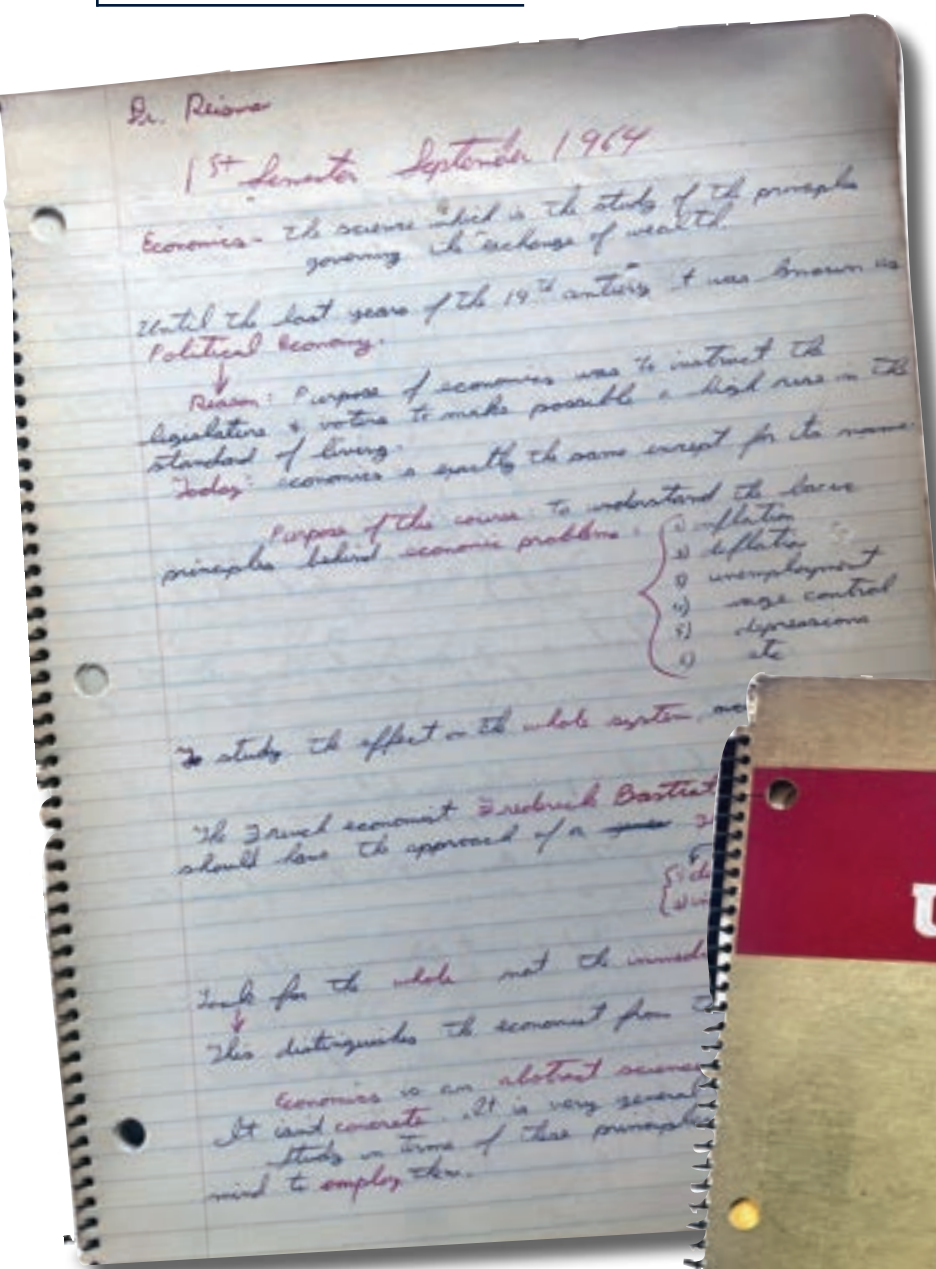 Dr. Reisman
1st Semester September 1964
Economics - the science which is the study of the principles
governing the exchange of wealth.
Until the last years of the 19th century it was known as
Political Economy.
Reason: Purpose of economics was to instruct the
legislature & voters to make possible a high rise in the
standard of living.
"Today" economics is exactly the same except for its name.
Purpose of this course: to understand the basic
principles behind economic problems:
1) inflation
2) deflation
3) unemployment
4) wage control
5) depressions
6) etc
To study the effect on the whole system,
The French economist Frederick Bastiat
should have the approach of a
Look for the whole not the
This distinguishes the economist from
Economics is an abstract science
It isnt concrete. It is very general
Study in terms of these principles
mind to employ them.
U